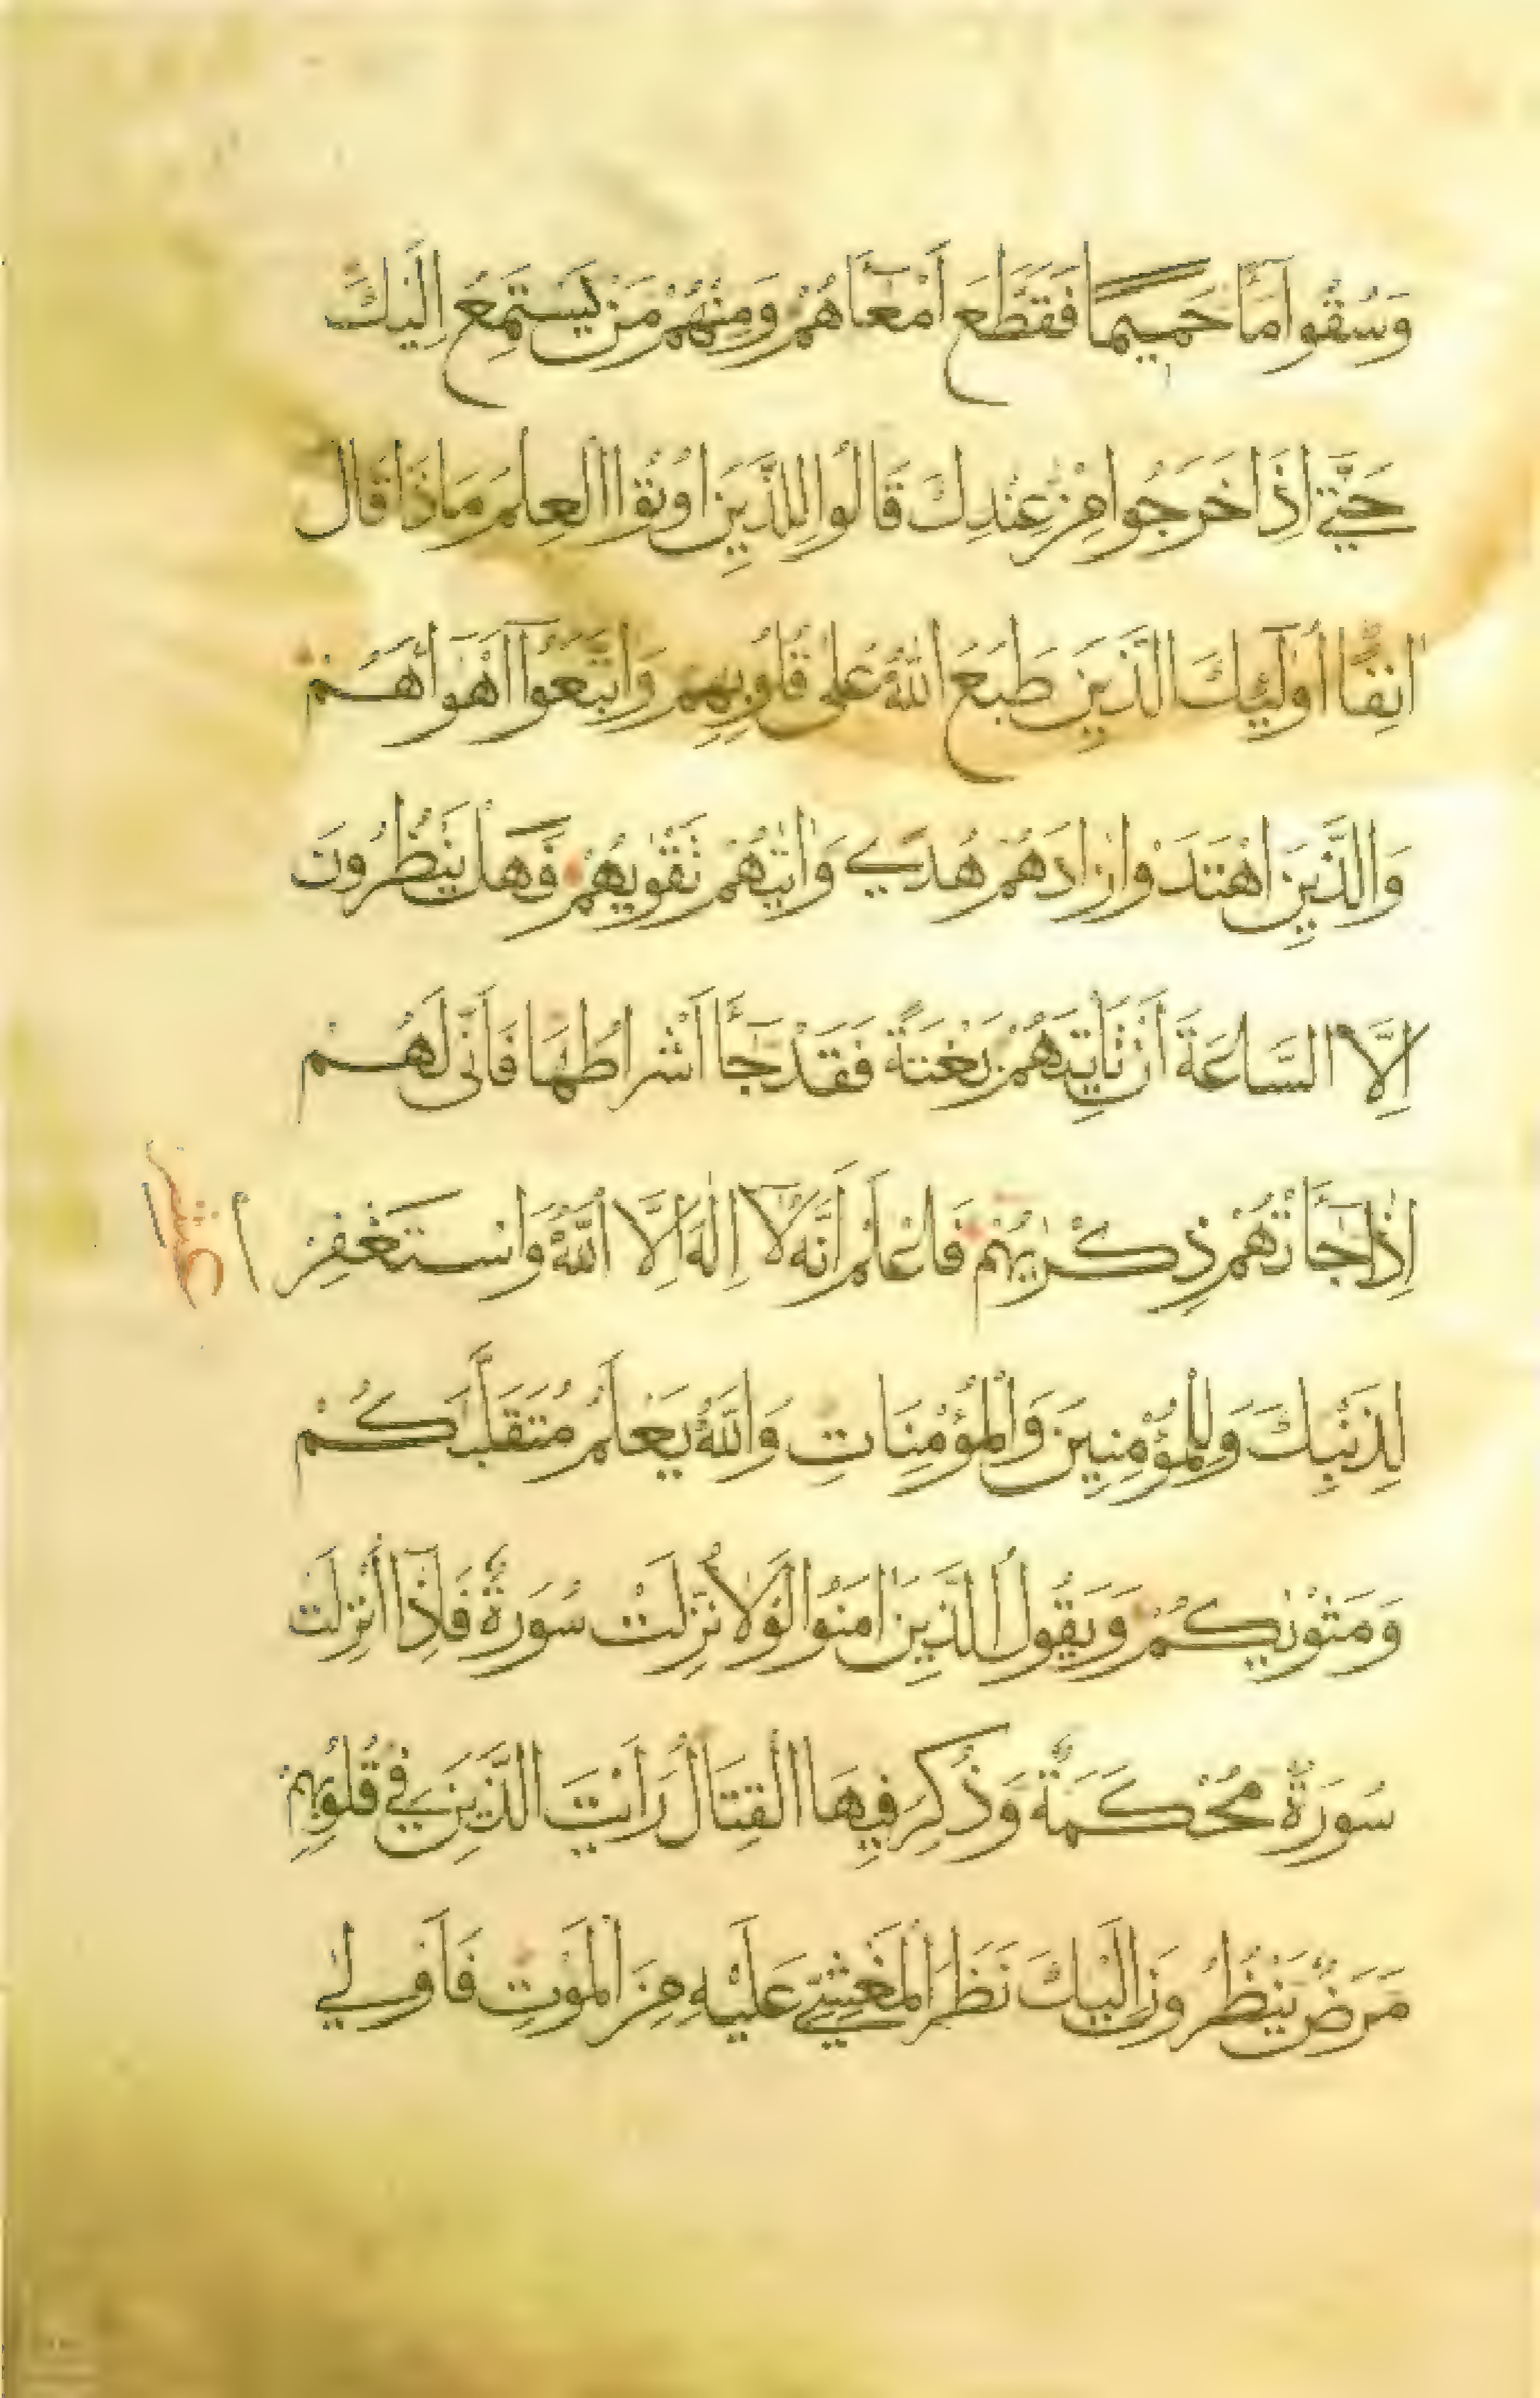 وَسُقُوا مَاءً حَمِيمًا فَقَطَّعَ اَمْعَاءَهُمْ وَمِنْهُمْ مَنْ يَسْتَمِعُ اِلَيْكَ
حَتَّى اِذَا خَرَجُوا مِنْ عِنْدِكَ قَالُوا لِلَّذِينَ اُوتُوا الْعِلْمَ مَاذَا قَالَ
اٰنِفًا اُولٰئِكَ الَّذِينَ طَبَعَ اللّٰهُ عَلٰى قُلُوبِهِمْ وَاتَّبَعُوا اَهْوَاءَهُمْ
وَالَّذِينَ اهْتَدَوْا زَادَهُمْ هُدًى وَاٰتٰيهُمْ تَقْوٰيهُمْ فَهَلْ يَنْظُرُونَ
اِلَّا السَّاعَةَ اَنْ تَاْتِيَهُمْ بَغْتَةً فَقَدْ جَاءَ اَشْرَاطُهَا فَاَنّٰى لَهُمْ
اِذَا جَاءَتْهُمْ ذِكْرٰيهُمْ فَاعْلَمْ اَنَّهُ لَا اِلٰهَ اِلَّا اللّٰهُ وَاسْتَغْفِرْ
عشر
لِذَنْبِكَ وَلِلْمُؤْمِنِينَ وَالْمُؤْمِنَاتِ وَاللّٰهُ يَعْلَمُ مُتَقَلَّبَكُمْ
وَمَثْوٰيكُمْ وَيَقُولُ الَّذِينَ اٰمَنُوا لَوْلَا نُزِّلَتْ سُورَةٌ فَاِذَا اُنْزِلَتْ
سُورَةٌ مُحْكَمَةٌ وَذُكِرَ فِيهَا الْقِتَالُ رَاَيْتَ الَّذِينَ فِي قُلُوبِهِمْ
مَرَضٌ يَنْظُرُونَ اِلَيْكَ نَظَرَ الْمَغْشِيِّ عَلَيْهِ مِنَ الْمَوْتِ فَاَوْلٰى